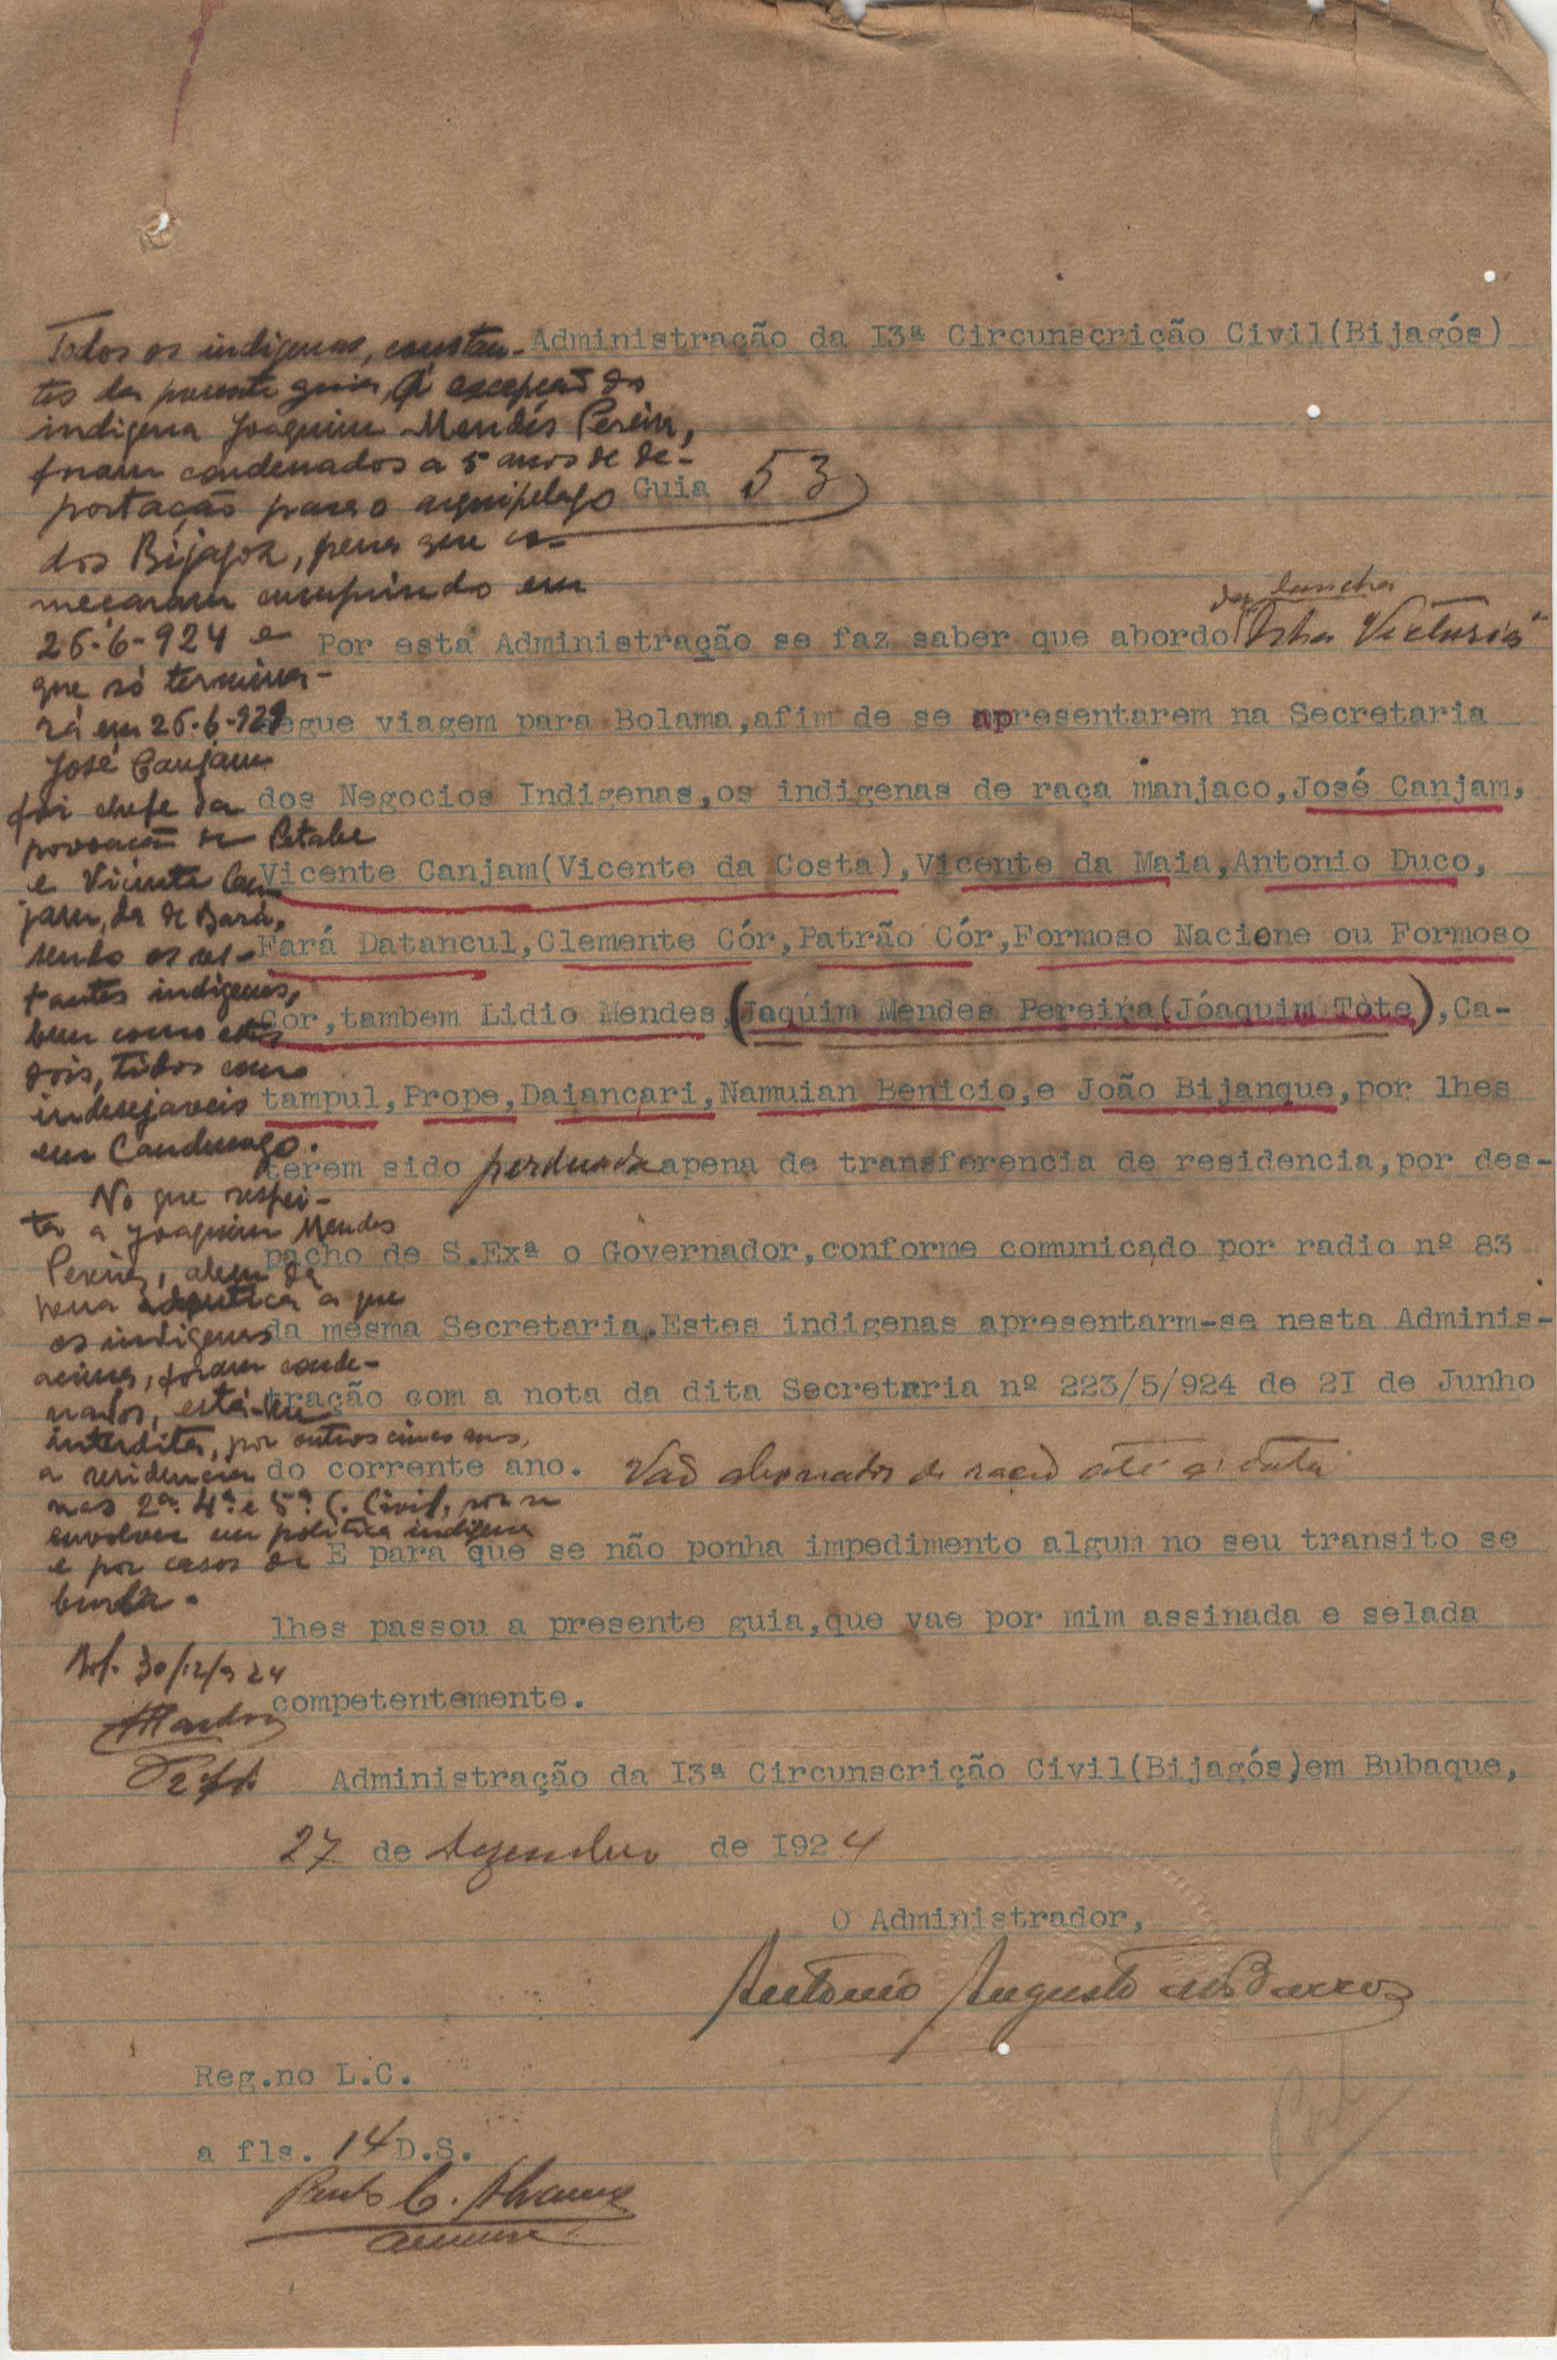 Administração da I3ª Circunscrição Civil(Bijagós)
Guia 53
da lancha
Por esta Administração se faz saber que abordo "Ilha Victoria"
segue viagem para Bolama,afim de se apresentarem na Secretaria
dos Negocios Indigenas,os indigenas de raça manjaco,José Canjam,
Vicente Canjam(Vicente da Costa),Vicente da Maia,Antonio Duco,
Fará Datancul,Clemente Cór,Patrão Cór,Formoso Nacione ou Formoso
Cor,tambem Lidio Mendes,(Jaquim Mendes Pereira(Jóaquim Tóte),Ca-
tampul,Prope,Daiancari,Namuian Benicio,e João Bijanque,por lhes
terem sido perduada apena de transferencia de residencia,por des-
pacho de S.Exª o Governador,conforme comunicado por radio nº 83
da mesma Secretaria.Estes indigenas apresentarm-se nesta Adminis-
tração com a nota da dita Secretaria nº 223/5/924 de 2I de Junho
do corrente ano. Vão abonados de ração até a' data
E para que se não ponha impedimento algum no seu transito se
lhes passou a presente guia,que vae por mim assinada e selada
competentemente.
Administração da I3ª Circunscrição Civil(Bijagós)em Bubaque,
27 de Dezembro de I924
O Administrador,
Antonio Augusto de Barros
Reg.no L.C.
a fls. 14 D.S.
Todos os indigenas, constan-
tes da presente guia, á excepção do
indigena Joaquim Mendes Pereira,
foram condenados a 5 anos de de-
portação para o arquipelago
dos Bijagoz, pena que co-
meçaram cumprindo em
26-6-924 e
que só termina-
rá em 26-6-929
José Canjam
foi chefe da
povoação de Petabe
e Vicente Can
jam, da de Bará,
sendo os res-
tantes indigenas,
bem como estes
dois, tidos como
indesejaveis
em Canchungo.
No que respei-
ta a Joaquim Mendes
Pereira, alem da
pena identica a que
os indigenas
acima, foram conde-
nados, está-lhe
interdita, por outros cinco anos,
a residencia
nas 2ª 4ª e 5ª C. Civil, por se
envolver em politica indigena
e por casos de
burla.
Bol. 30/12/924